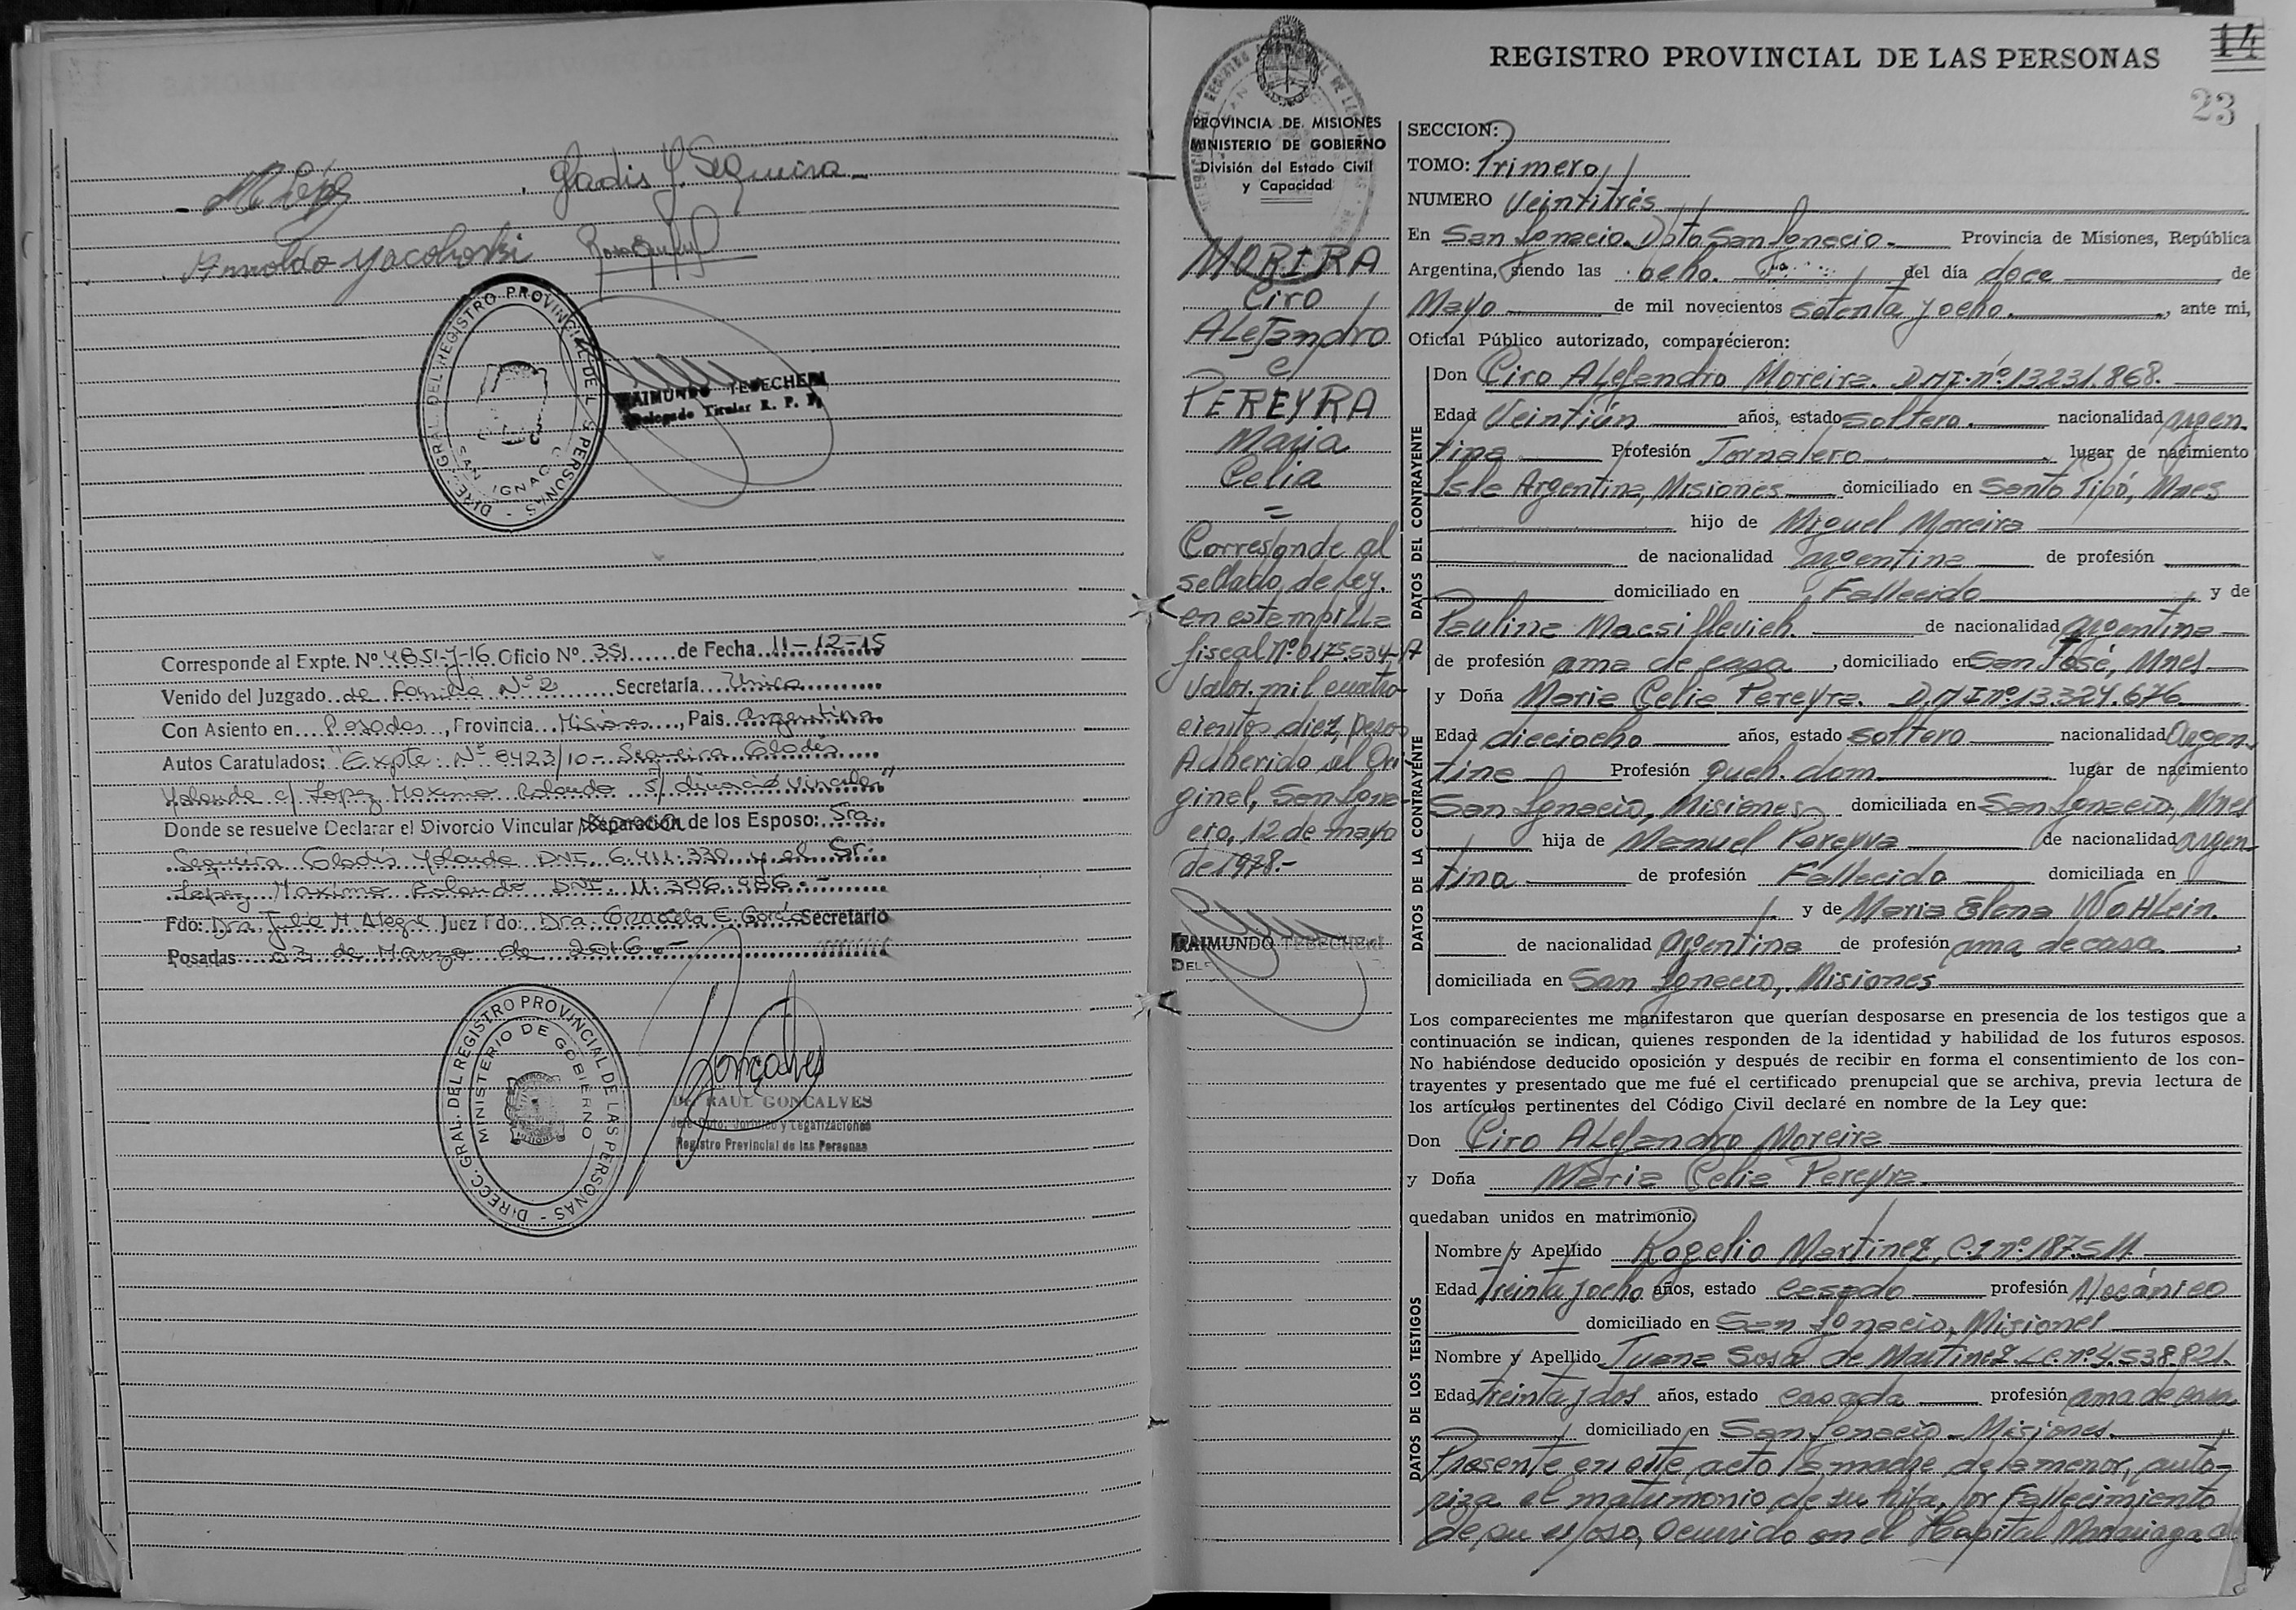 M López
Gladis Y. Sequeira
Arnoldo Yacoboski
DIRE. GRAL. DEL REGISTRO PROVINCIAL DE LAS PERSONAS -
SAN IGNACIO
RAIMUNDO TEBECHERI
Delegado Titular R. P. P.
Corresponde al Expte. Nº 4851-J-16 Oficio Nº 351 de Fecha 11-12-15
Venido del Juzgado de Familia Nº 2 Secretaría Unica
Con Asiento en Posadas, Provincia Misiones, Pais Argentina
Autos Caratulados: "Expte: Nº 8423/10 - Sequeira Gladis
Yolanda c/ Lopez Maximo Rolando s/ divorcio vincular"
Donde se resuelve Declarar el Divorcio Vincular / Separación de los Esposo: Sra.
Sequeira Gladis Yolanda DNI. 6.411.330 y el Sr.
Lopez Maximo Rolando DNI: 11.306.986.-
Fdo: Dra. Julia H. Alegre Juez Fdo: Dra. Graciela E. García Secretario
Posadas 03 de Marzo de 2016.-
DIRECC. GRAL. DEL REGISTRO PROVINCIAL DE LAS PERSONAS -
MINISTERIO DE GOBIERNO
Gonçalves
Dr. RAUL GONCALVES
Jefe Dpto. Jurídico y Legalizaciones
Registro Provincial de las Personas
REGISTRO PROVINCIAL DE LAS PERSONAS
14
23
PROVINCIA DE MISIONES
MINISTERIO DE GOBIERNO
División del Estado Civil
y Capacidad
MORIRA
Ciro
Alejandro
c/
PEREYRA
Maria
Celia
=
Corresponde al
sellado de ley.
en estampilla
fiscal Nº 0175.534-A
valor. mil cuatro-
cientos diez pesos
Adherido al Ori
ginal, San Igna-
cio, 12 de mayo
de 1978.-
RAIMUNDO TEBECHERI
DEL
SECCION:
TOMO: Primero
NUMERO Veintitrés
En San Ignacio. Dpto San Ignacio. Provincia de Misiones, República
Argentina, siendo las ocho. del día doce de
Mayo de mil novecientos setenta y ocho., ante mi,
Oficial Público autorizado, comparecieron:
DATOS DEL CONTRAYENTE
Don Ciro Alejandro Moreira. D.N.I. nº 13231.868.
Edad Veintiún años, estado soltero. nacionalidad argen
tina Profesión Jornalero lugar de nacimiento
Isla Argentina, Misiones domiciliado en Santo Pipó, Mnes
hijo de Miguel Moreira
de nacionalidad argentina de profesión
domiciliado en Fallecido y de
Paulina Macsillevich. de nacionalidad argentina
de profesión ama de casa, domiciliado en San José, Mnes
DATOS DE LA CONTRAYENTE
y Doña Maria Celia Pereyra. D.N.I nº 13.327.676
Edad dieciocho años, estado soltero nacionalidad Argen
tina Profesión queh. dom. lugar de nacimiento
San Ignacio, Misiones domiciliada en San Ignacio, Mnes
hija de Manuel Pereyra de nacionalidad argen
tina de profesión Fallecido domiciliada en
y de Maria Elena Wohlein.
de nacionalidad Argentina de profesión ama de casa,
domiciliada en San Ignacio, Misiones
Los comparecientes me manifestaron que querían desposarse en presencia de los testigos que a
continuación se indican, quienes responden de la identidad y habilidad de los futuros esposos.
No habiéndose deducido oposición y después de recibir en forma el consentimiento de los con-
trayentes y presentado que me fué el certificado prenupcial que se archiva, previa lectura de
los artículos pertinentes del Código Civil declaré en nombre de la Ley que:
Don Ciro Alejandro Moreira
y Doña Maria Celia Pereyra.
quedaban unidos en matrimonio
DATOS DE LOS TESTIGOS
Nombre y Apellido Rogelio Martinez, C.I nº 187.511.
Edad treinta y ocho años, estado casado profesión Mecánico
domiciliado en San Ignacio, Misiones
Nombre y Apellido Juana Sosa de Martinez. L.C. nº 4.538.821.
Edad treinta y dos años, estado casada profesión ama de casa
domiciliado en San Ignacio - Misiones.
Presente en este acto la madre de la menor, auto-
riza el matrimonio de su hija, por fallecimiento
de su esposo, ocurrido en el Hospital Madariaga